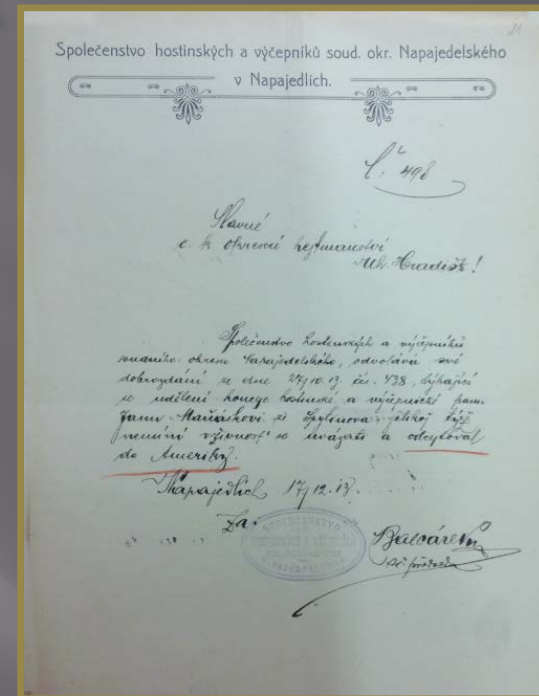 21
Společenstvo hostinských a výčepníků soud. okr. Napajedelského
v Napajedlích.
Č. 498
Slavné
c. k. okresní hejtmanství
Uh. Hradiště!
Společenstvo hostinských a výčepníků
soudního okresu Napajedelského, odvolává své
dobrozdání ze dne 27/10.13 čís. 438, týkající
se udělení koncese hostinské a výčepnické panu
Janu Maňáskovi ze Spytinova jelikož týž
nemíní v živnost se uvázati a odcestoval
do Ameriky.
Napajedlích 17/12.13.
Za:
SPOLEČENSTVO
Balcárek